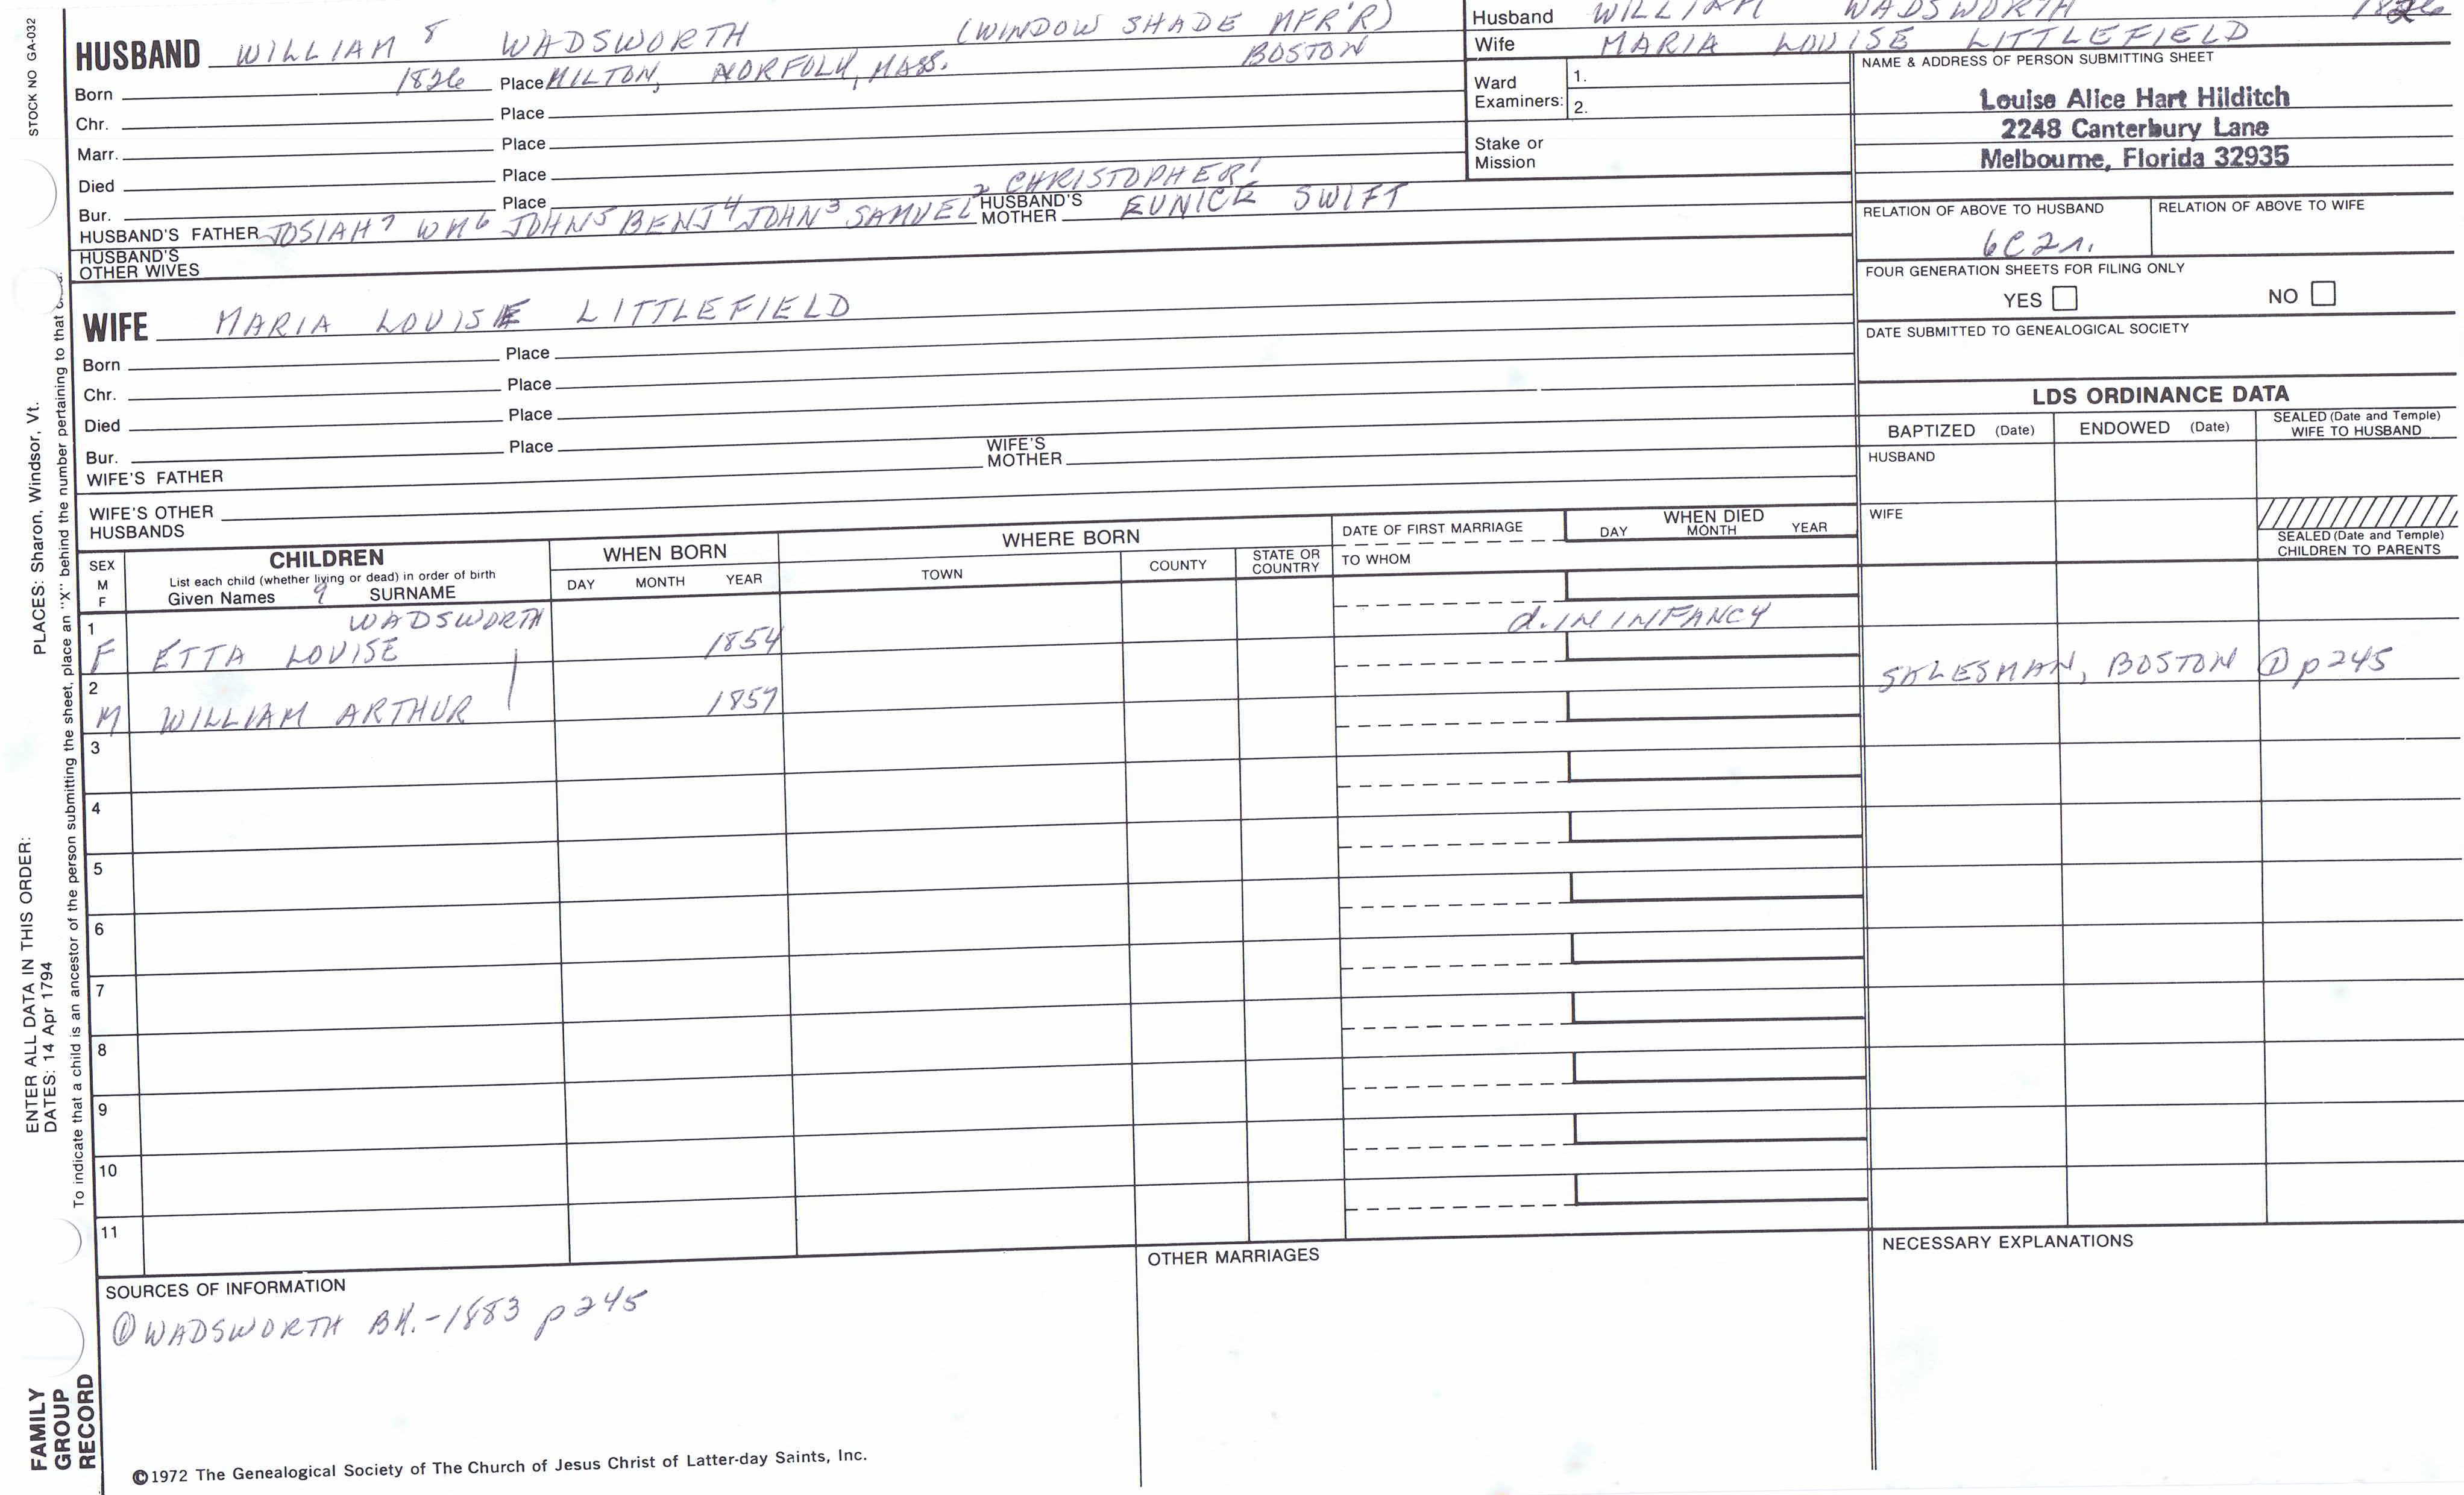 STOCK NO GA-032
HUSBAND WILLIAM 8 WADSWORTH (WINDOW SHADE MFR'R)
BOSTON
Born 1826 Place MILTON, NORFOLK, MASS.
Chr. Place
Marr. Place
Died Place
Bur. Place
2 CHRISTOPHER 1
HUSBAND'S FATHER JOSIAH 7 WM 6 JOHN 5 BENJ 4 JOHN 3 SAMUEL HUSBAND'S MOTHER EUNICE SWIFT
HUSBAND'S
OTHER WIVES
WIFE MARIA LOUISE LITTLEFIELD
Born Place
Chr. Place
Died Place
Bur. Place
WIFE'S FATHER WIFE'S MOTHER
WIFE'S OTHER
HUSBANDS
Husband WILLIAM WADSWORTH 1826
Wife MARIA LOUISE LITTLEFIELD
Ward
Examiners: 1.
2.
Stake or
Mission
NAME & ADDRESS OF PERSON SUBMITTING SHEET
Louise Alice Hart Hilditch
2248 Canterbury Lane
Melbourne, Florida 32935
RELATION OF ABOVE TO HUSBAND RELATION OF ABOVE TO WIFE
6C2r.
FOUR GENERATION SHEETS FOR FILING ONLY
YES NO
DATE SUBMITTED TO GENEALOGICAL SOCIETY
LDS ORDINANCE DATA
BAPTIZED (Date) ENDOWED (Date) SEALED (Date and Temple)
WIFE TO HUSBAND
HUSBAND
WIFE
SEALED (Date and Temple)
CHILDREN TO PARENTS
SEX
M
F
CHILDREN
List each child (whether living or dead) in order of birth
Given Names 9 SURNAME
WHEN BORN
DAY MONTH YEAR
WHERE BORN
TOWN COUNTY STATE OR
COUNTRY
DATE OF FIRST MARRIAGE
TO WHOM
WHEN DIED
DAY MONTH YEAR
1 WADSWORTH
F ETTA LOUISE 1854 d. IN INFANCY
2
M WILLIAM ARTHUR 1857 SALESMAN, BOSTON ① p245
3
4
5
6
7
8
9
10
11
SOURCES OF INFORMATION
① WADSWORTH BK.-1883 p245
OTHER MARRIAGES
NECESSARY EXPLANATIONS
©1972 The Genealogical Society of The Church of Jesus Christ of Latter-day Saints, Inc.
ENTER ALL DATA IN THIS ORDER:
DATES: 14 Apr 1794
PLACES: Sharon, Windsor, Vt.
To indicate that a child is an ancestor of the person submitting the sheet, place an "X" behind the number pertaining to that
FAMILY
GROUP
RECORD